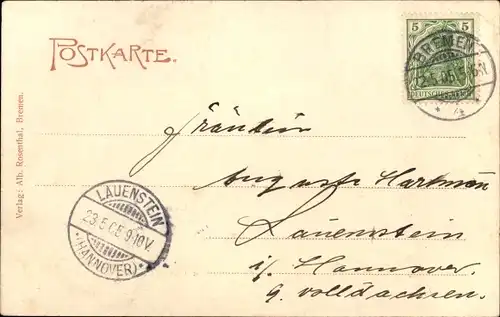 POSTKARTE.
5 5
DEUTSCHES REICH
BREMEN
4
Fräulein
Auguste Hartmann
Lauenstein
i/. Hannover.
LAUENSTEIN
23.5.05.9-10V.
(HANNOVER)
Verlag: Alb. Rosenthal, Bremen.